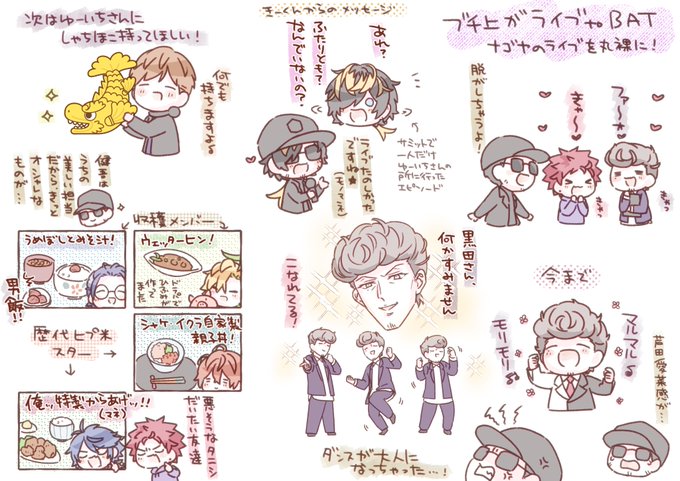 次はゆーいちさんに
しゃちほこ持ってほしい!
何でも
持ちますよ。
きーくんからのメッセージ
あれ?
ふたりとも?
なんでいないの?
サミットで
一人だけ
ゆーいちさんの
所に行った
エピソード
ライブたのしかった
ですね★
(モノマネ)
ブチ上がライブ中 BAT
ナゴヤのライブを丸裸に!
脱がしちゃうよ!
ファ〜
きゃ〜
健吾は
うちの
美しい担当
だからきっと
オシャレな
ものが…
収穫メンバー
うめぼしとみそ汁!
男飯!!
ウェッターヒン!
ドラパで
ひふみが
作って
ました
歴代ヒプ米
スター
シャケ・イクラ自家製
親子丼!
俺ッ特製からあげッ!!
(マネ)
悪そうなタニシ
だいたい友達
黒田さん、
何かすみません
こなれてる!
ダンスが大人に
なっちゃった…!
今まで
マルマル
モリモリ
芦田愛菜感が…